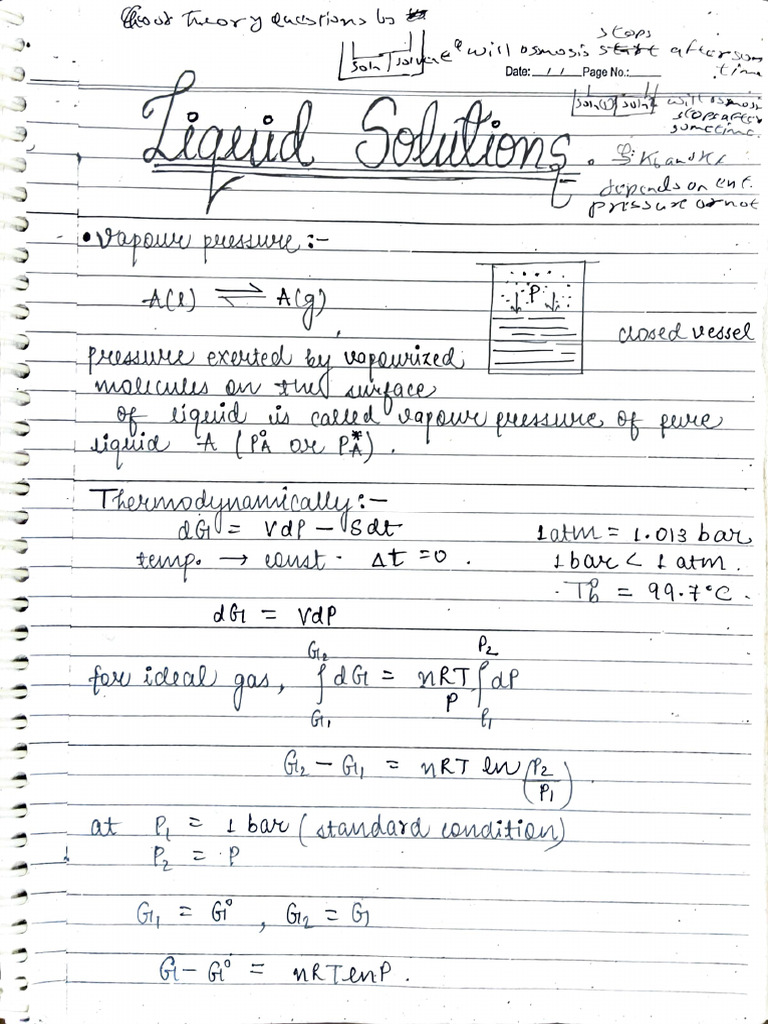 Theory questions
soln | solvent will osmosis stops after som
time
Date: / / Page No.:
soln(1) soln2 will osmosis
stops after
sometime.
Liquid Solutions
Kb and Kf
depends on ent.
pressure or not
• Vapour pressure :-
A(l) ⇌ A(g)
P
closed vessel
pressure exerted by vapourized
molecules on the surface
of liquid is called vapour pressure of pure
liquid A (P°A or P*A).
Thermodynamically :-
dG = VdP - Sdt
1 atm = 1.013 bar
temp. → const. Δt = 0.
1 bar < 1 atm.
Tb = 99.7°C.
dG = VdP
for ideal gas, ∫_{G1}^{G2} dG = nRT/P ∫_{P1}^{P2} dP
G2 - G1 = nRT ln (P2/P1)
at P1 = 1 bar (standard condition)
P2 = P
G1 = G°, G2 = G
G - G° = nRT ln P.